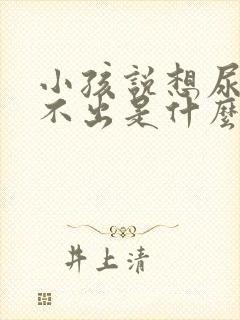 小孩說想尿
不出是什麼
井上清